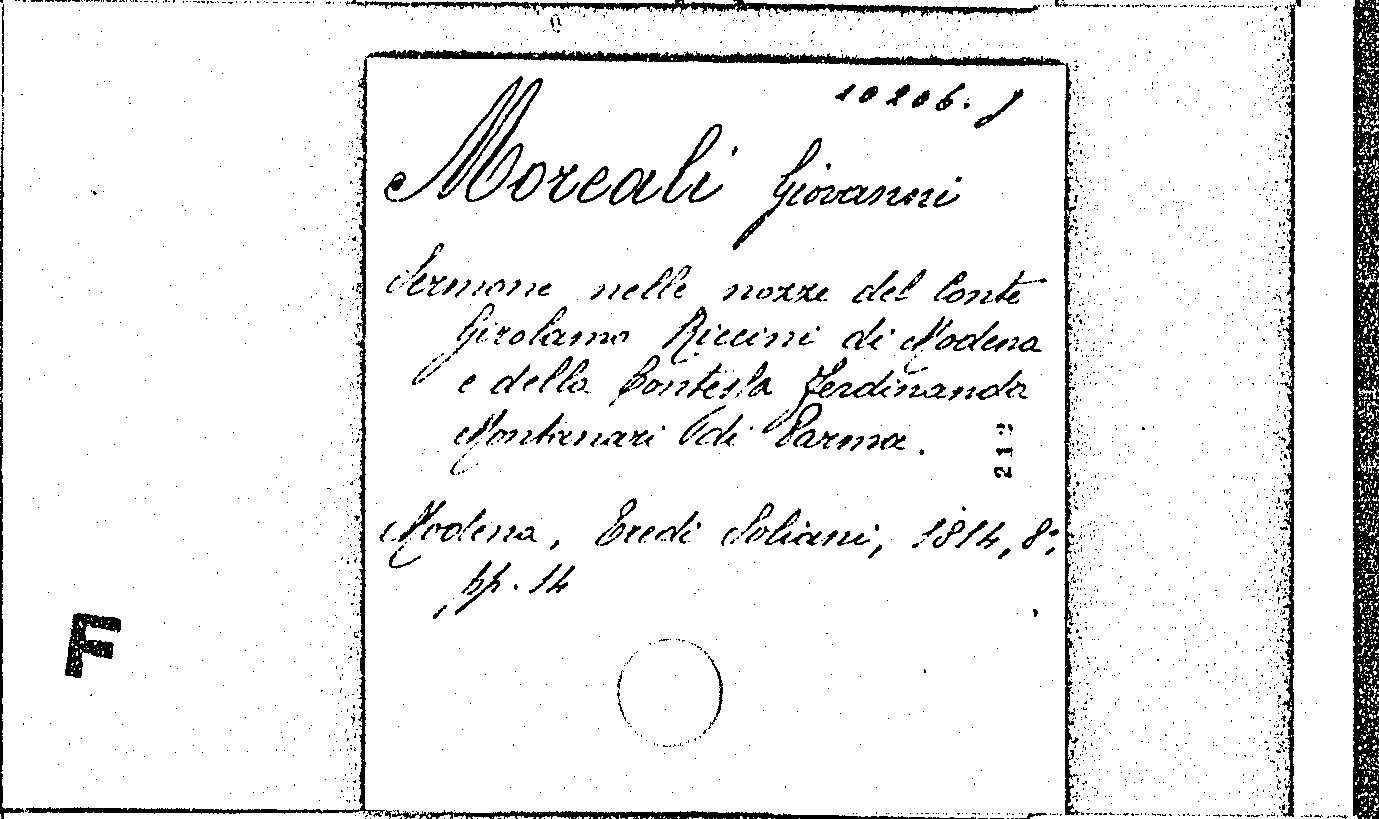 10206. J
Moreali Giovanni
Sermone nelle nozze del Conte
Girolamo Riccini di Modena
e della Contessa Ferdinanda
Montanari di Parma.
Modena, Eredi Soliani, 1814, 8°,
pp. 14
F